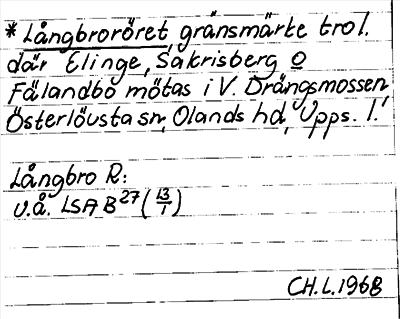 * Långbroröret, gränsmärke trol.
där Elinge, Sakrisberg o
Fälandbo mötas i V. Drängsmossen,
Österlövsta sn, Olands hd, Upps. l.
Långbro R:
u.å. LSA B 27 (13/1)
CH.L.1968